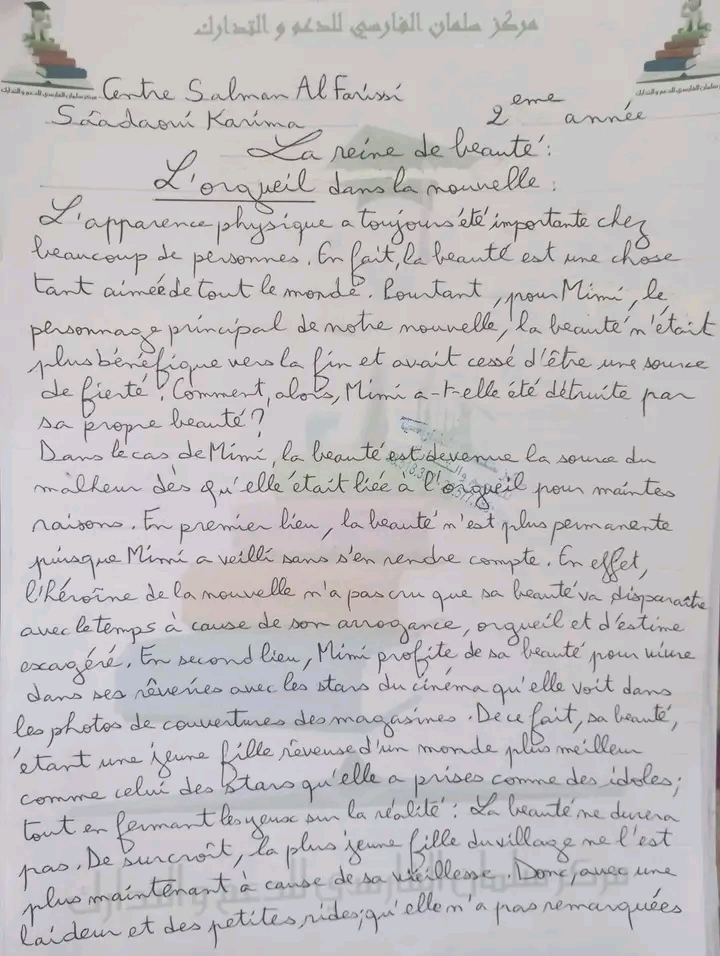 مركز سلمان الفارسي للدعم و التدارك
Centre Salman Al Farissi
Sáadaoui Karima 2eme année
La reine de beauté :
L'orgueil dans la nouvelle :
L'apparence physique a toujours été importante chez
beaucoup de personnes. En fait, la beauté est une chose
tant aimée de tout le monde. Pourtant, pour Mimi, le
personnage principal de notre nouvelle, la beauté n'était
plus bénéfique vers la fin et avait cessé d'être une source
de fierté. Comment, alors, Mimi a-t-elle été détruite par
sa propre beauté ?
Dans le cas de Mimi, la beauté est devenue la source du
malheur dès qu'elle était liée à l'orgueil pour maintes
raisons. En premier lieu, la beauté n'est plus permanente
puisque Mimi a veilli sans s'en rendre compte. En effet,
l'héroïne de la nouvelle n'a pas cru que sa beauté va disparaître
avec le temps à cause de son arrogance, orgueil et d'estime
exagéré. En second lieu, Mimi profite de sa beauté pour vivre
dans ses rêveries avec les stars du cinéma qu'elle voit dans
les photos de couvertures des magasines. De ce fait, sa beauté,
étant une jeune fille rêveuse d'un monde plus meilleur
comme celui des stars qu'elle a prises comme des idoles ;
tout en fermant les yeux sur la réalité : La beauté ne durera
pas. De surcroît, la plus jeune fille du village ne l'est
plus maintenant à cause de sa vieillesse. Donc, avec une
laideur et des petites rides, qu'elle n'a pas remarquées
مركز سلمان الفارسي للدعم و التدارك